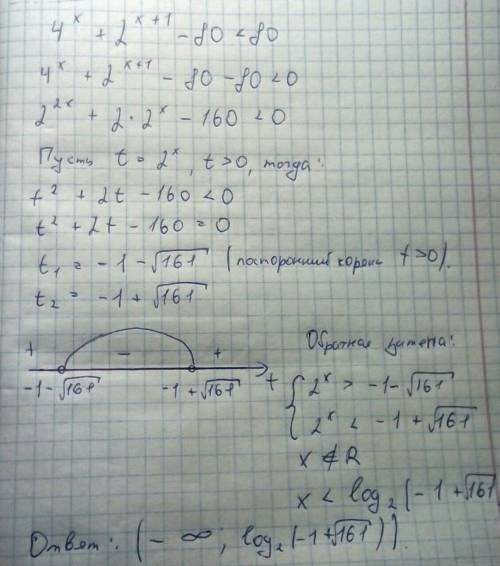 4^x + 2^{x+1} - 80 < 80
4^x + 2^{x+1} - 80 - 80 < 0
2^{2x} + 2 · 2^x - 160 < 0
Пусть t = 2^x, t > 0, тогда:
t² + 2t - 160 < 0
t² + 2t - 160 = 0
t₁ = -1 - √161 (посторонний корень t > 0).
t₂ = -1 + √161
+ - + t
-1 - √161 -1 + √161
Обратная замена:
{ 2^x > -1 - √161
2^x < -1 + √161
x ∉ R
x < log₂(-1 + √161
Ответ: (-∞; log₂(-1 + √161)).